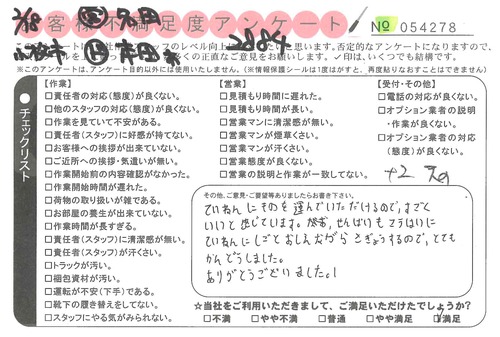 お客様不満足度アンケート
No 054278
2/18
2804
※このアンケートは、アンケート目的以外には使用いたしません。(※情報保護シールは1度がすと、再度貼りなおすことはできません)
チェックリスト
【作業】
□責任者の対応(態度)が良くない。
□他のスタッフの対応(態度)が良くない。
□作業を見ていて不安がある。
□責任者(スタッフ)に好感が持てない。
□お客様への挨拶が出来ていない。
□ご近所への挨拶・気遣いが無い。
□作業開始前の内容確認がなかった。
□作業開始時間が遅れた。
□荷物の取り扱いが雑である。
□お部屋の養生が出来ていない。
□作業時間が長すぎる。
□責任者(スタッフ)に清潔感が無い。
□責任者(スタッフ)が汗くさい。
□トラックが汚い。
□梱包資材が汚い。
□運転が不安(下手)である。
□靴下の履き替えをしてない。
□スタッフにやる気がみられない。
【営業】
□見積もり時間に遅れた。
□見積もり時間が長い。
□営業マンに清潔感が無い。
□営業マンが煙草くさい。
□営業マンが汗くさい。
□営業態度が良くない。
□営業の説明と作業が一致してない。
【受付・その他】
□電話の対応が良くない。
□オプション業者の説明
・作業が良くない。
□オプション業者の対応
(態度)が良くない。
その他、ご意見・ご要望等ありましたらお書き下さい。
ていねいにものを運んでいただけるので、すごく
いいと感じています。
ていねいにしごとおしえながらさぎょうするので、とても
かんどうしました。
ありがとうございました。!
☆当社をご利用いただきまして、ご満足いただけたでしょうか?
□不満 □やや不満 □普通 □やや満足 □満足